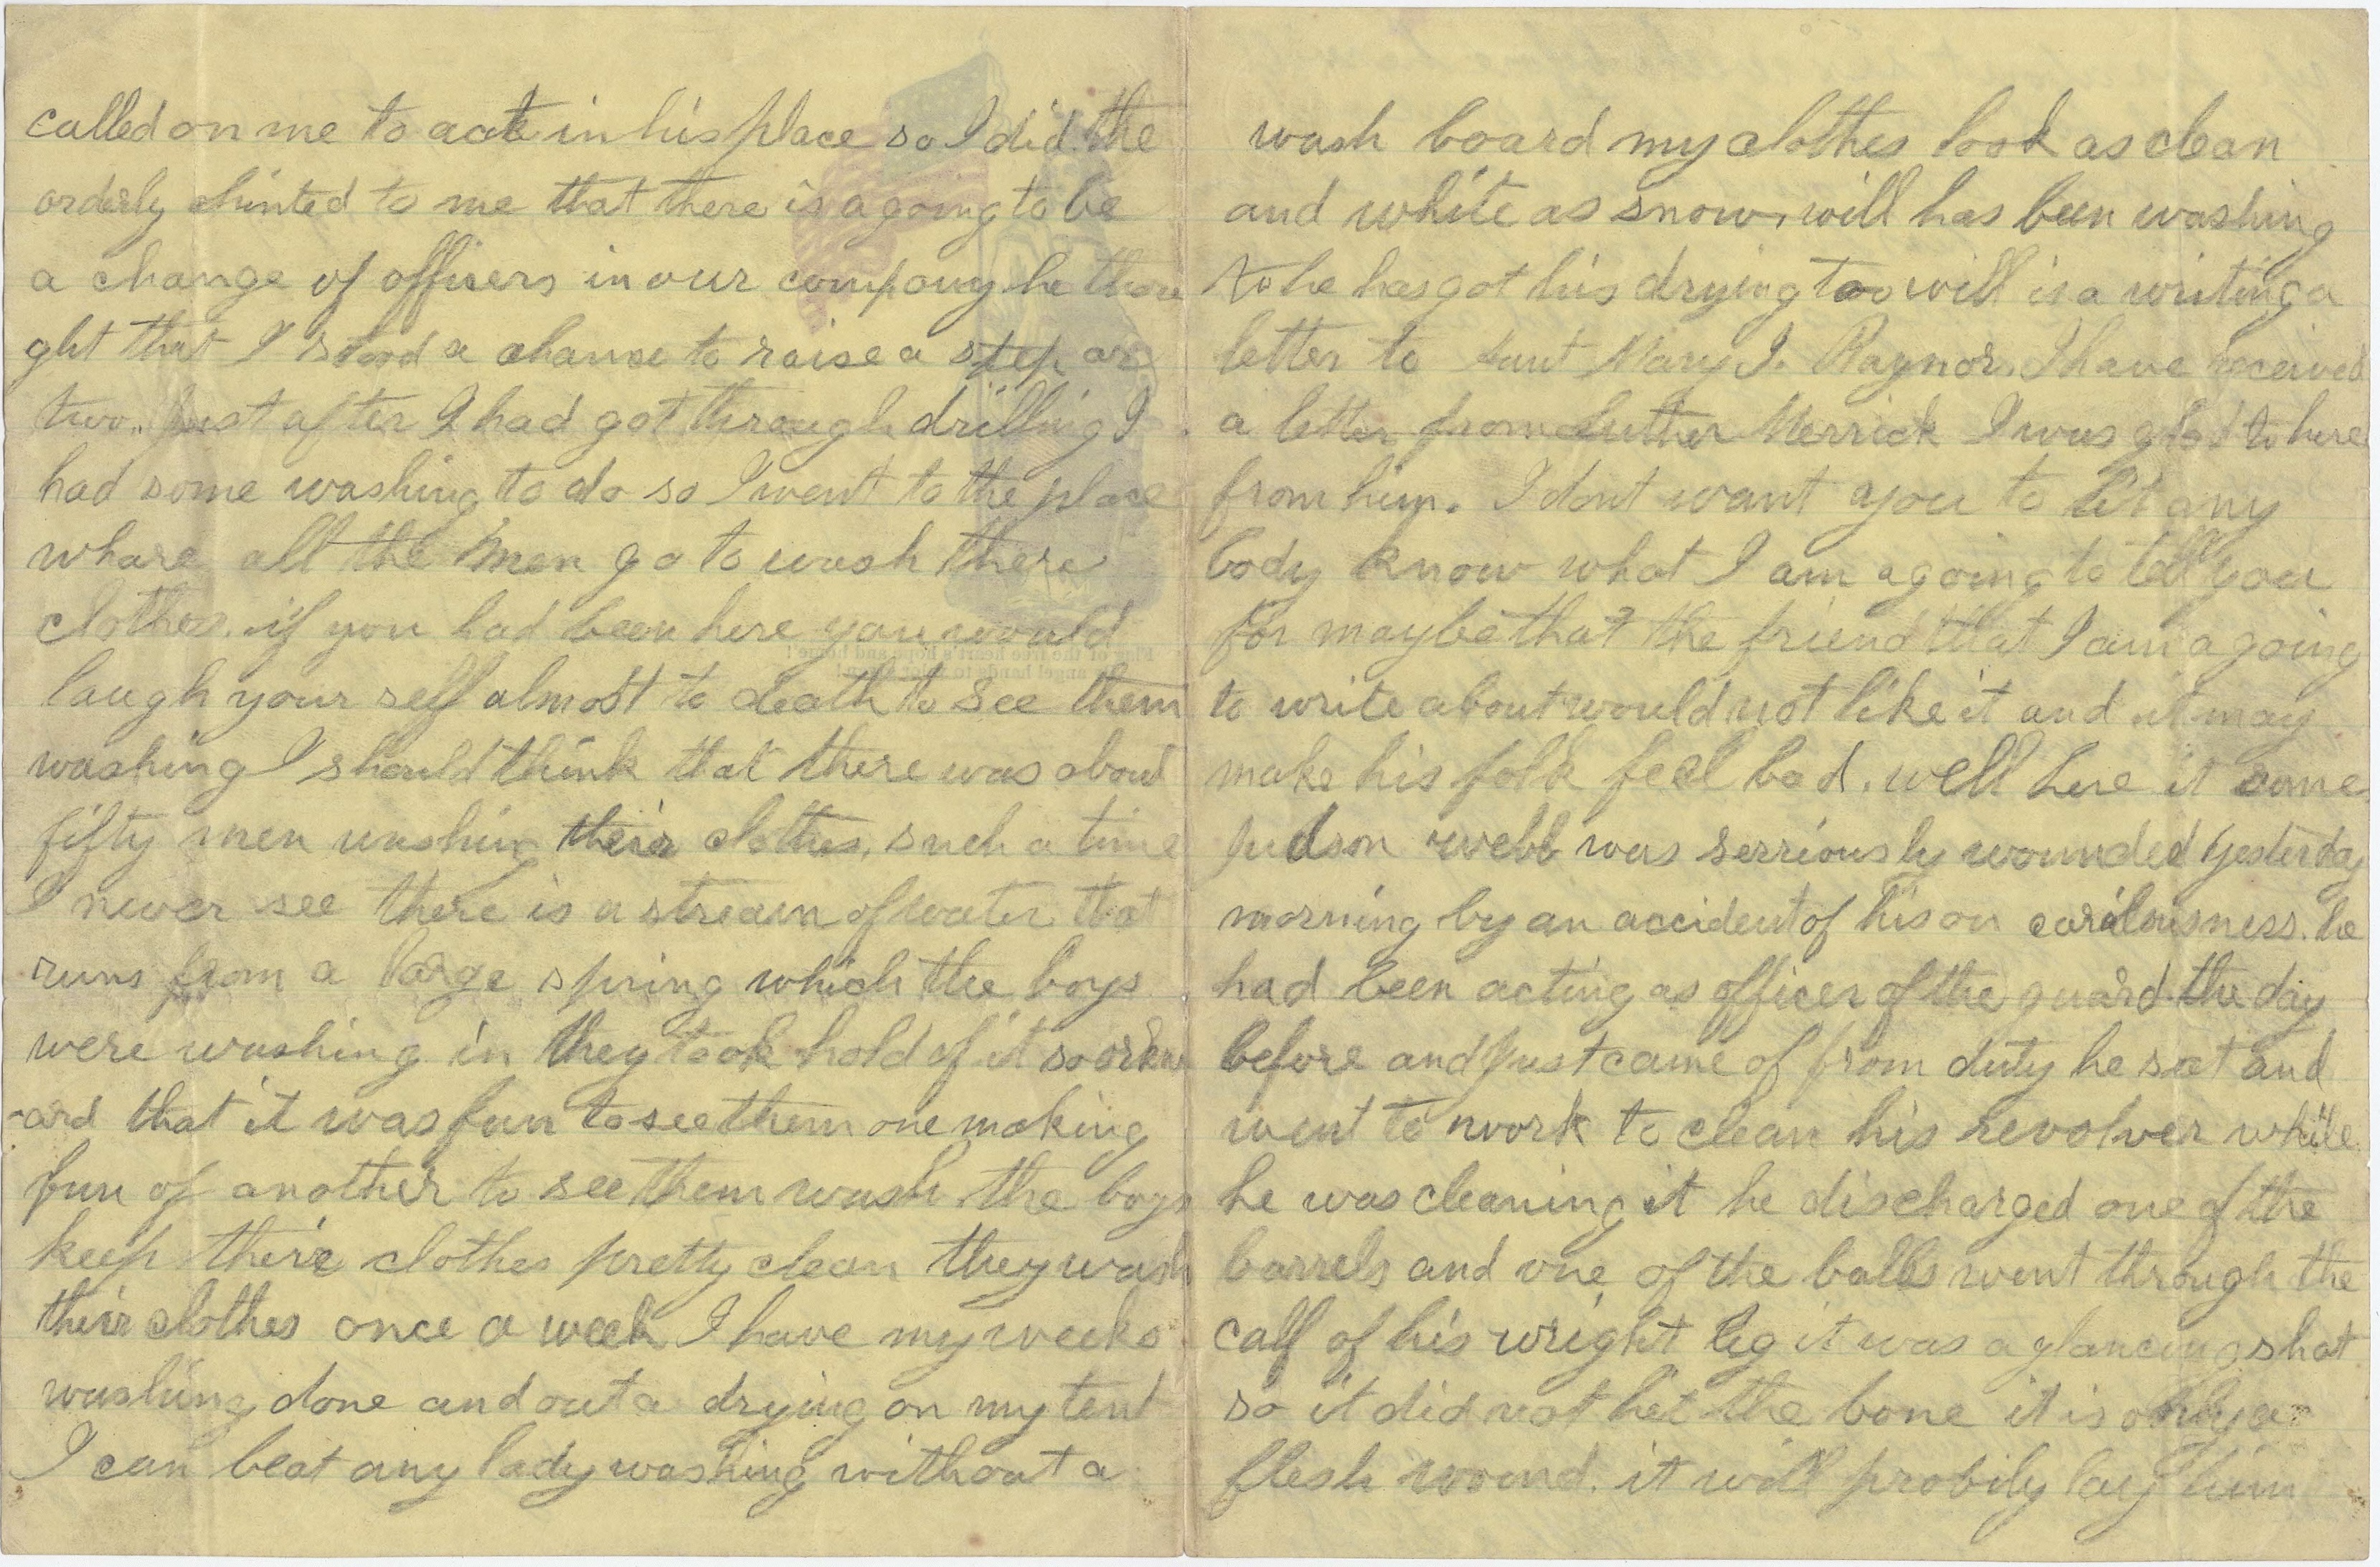 called on me to acte in his place so I did. the
orderly hinted to me that there is a going to be
a change of officers in our company he thou
ght that I stood a chance to raise a step or
two.. Just after I had got through drilling I
had some washing to do so I went to the place
whare all the men go to wash there
clothes. if you had been here you would
laugh your self almost to death to see them
washing I should think that there was about
fifty men washing their clothes, such a time
I never see there is a stream of water that
runs from a large spring which the boys
were washing in they took hold of it so orkw
-ard that it was fun to see them one making
fun of another to see them wash. the boys
keep there clothes pretty clean they wash
their clothes once a week I have my weeks
washing done and out a drying on my tent
I can beat any lady washing without a
wash board my clothes look as clean
and white as snow. will has been washing
to he has got his drying too will is a writing a
letter to Aunt Mary J. Raynor. I have received
a letter from Luther Merrick I was glad to here
from him. I dont want you to let any
body know what I am agoing to tell you
for maybe that the friend that I am a going
to write about would not like it and it may
make his folk feel bad. well here it come
Judson webb was serriously wounded yesterday
morning by an accident of his on carelousness. he
had been acting as officer of the guard the day
before and Just came of from duty he sat and
went to work to clean his revolver while
he was cleaning it he discharged one of the
barrels and one of the balls went through the
calf of his wright leg it was a glancing shot
so it did not het the bone it is only a
flesh wound. it will probily lay him
Flag of the free heart's hope and home!
angel hands to valor given!